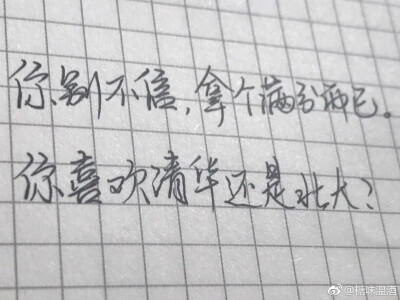 你别不信，拿个满分而已。
你喜欢清华还是北大？
@糖味温酒